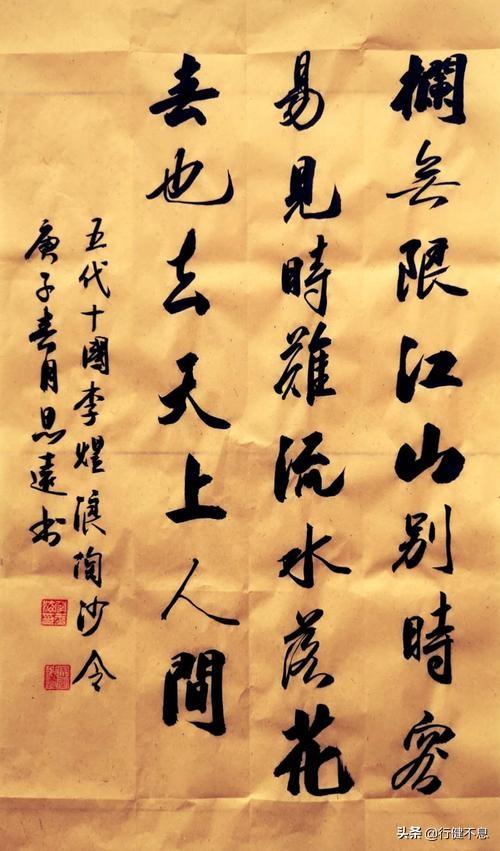 欄無限江山別時容
易見時難流水落花
春也去天上人間
五代十國李煜浪陶沙令
庚子春月思遠书
头条 @行健不息